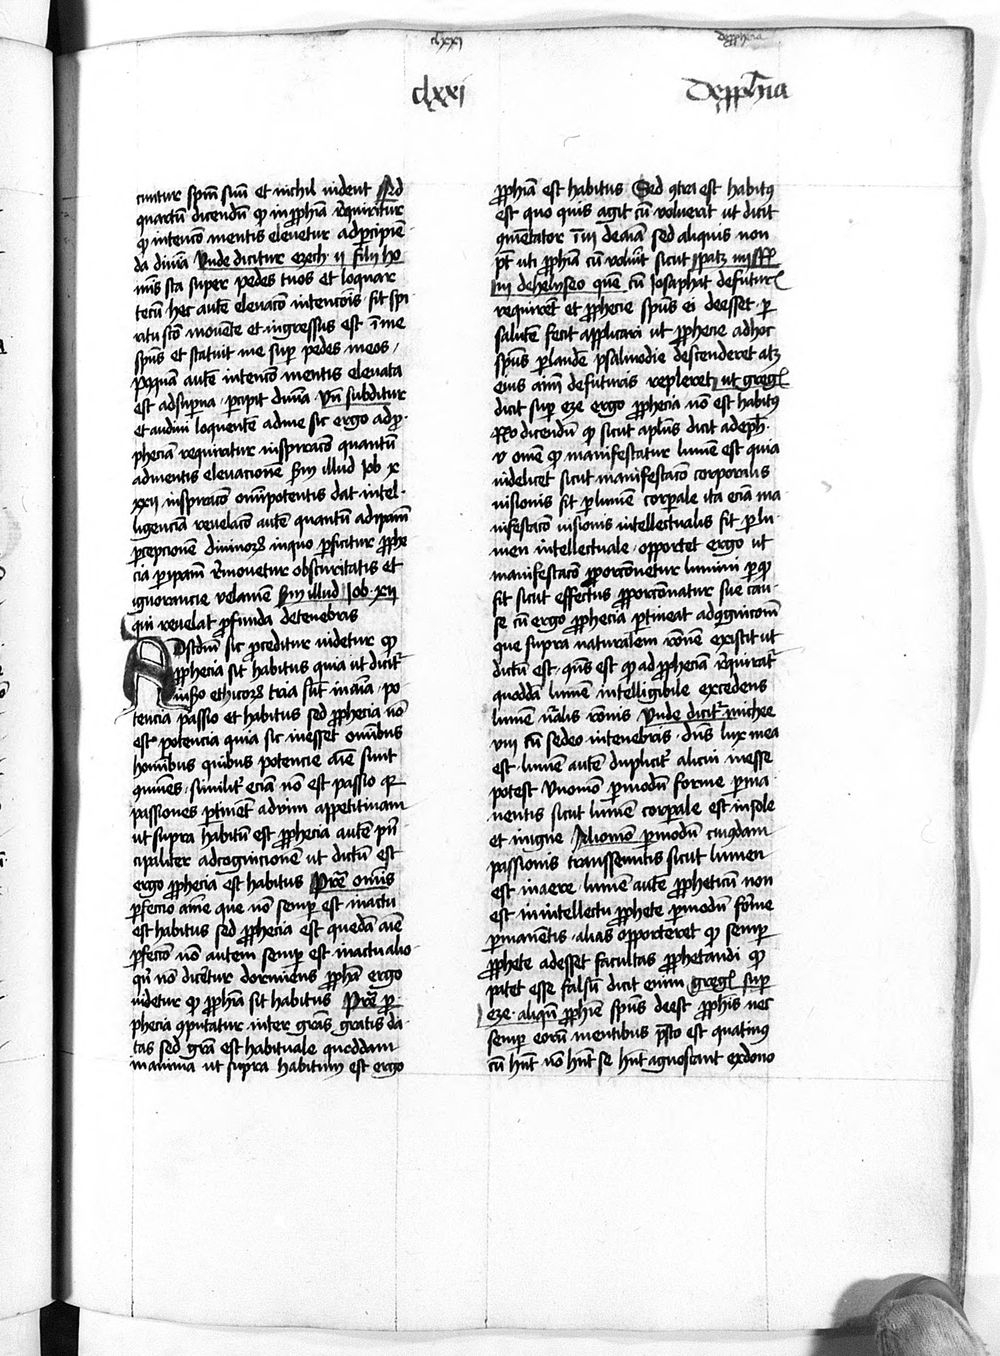 clxxi
de ꝓph̄ia
clxxi
de ꝓph̄ia
cuntur spm̄ suū et nichil uident Ad
quartū dicendū ꝙ in ꝓph̄ia req̄uiritur
ꝙ intenco mentis eleuetur ad ꝑcipien̄
da diuīa Unde dicitur ezech ii fili ho
mīs sta super pedes tuos et loquar
tecū hec autē eleuaco intencōis fit spi
ritu sc̄o mouēte et ingressus est ī me
spūs et statuit me suꝑ pedes meos
ꝓqquam autē intenco mentis eleuata
est ad suꝑna ꝑcipit diuīa vn̄ subditur
et audiui loquentē ad me sic ergo ad ꝓ
pheciam requiratur inspiraco quantū
ad mentis eleuacionē scd̄m illud Job x
xxii inspiraco omīpotentis dat intel
ligenciam reuelaco autē quantū ad ipsam
ꝑcepcionē diuinoꝝ in quo ꝑficitur ꝓphe
cia ꝑ ipsam remouetur obscuritatis et
ignorancie velamē scd̄m illud Job xii
qui reuelat ꝓfunda de tenebris
Ad scdm̄ sic ꝓceditur uidetur ꝙ
ꝓphecia sit habitus quia ut dicit᷑
in iiᵒ ethicoꝝ tria sūt in aīa po
tencia passio et habitus sed ꝓphecia nō
est potencia quia sic inesset omībus
homībus quibus potencie aīe sunt
ꝯmunes similit᷑ eciam nō est passio qꝛ
passiones ꝑtinēt ad vim appetitiuam
ut supra habitū est ꝓphecia autē pn̄
cipaliter ad cognicionē ut dictū est
ergo ꝓphecia est habitus Pret̄ omīs
ꝑfectio aīme que nō semꝑ est in actu
est habitus sed ꝓphecia est quedā aīe
ꝑfectio nō autem semꝑ est in actu alio
qn̄ nō dicetur dormiens ꝓphā ergo
uidetur ꝙ ꝓph̄ia sit habitus Pret̄ ꝓ
phecia ꝯputatur inter gr̄as gratis da
tas sed gr̄a est habituale quoddam
in anima ut supra habitum est ergo
ꝓph̄ia est habitus Sed ꝯtra est habitꝰ
est quo quis agit cū voluerit ut dicit
ꝯmētator ī iii de aīa sed aliquis non
pt̄ uti ꝓph̄ia cū voluīt sicut patꝫ iiii Rg̃
iii de helyseo quē cū Josaphat de futur᷑
requireret et ꝓphecie spūs ei deesset ꝑ
saltē fecit applicari ut ꝓphecie ad hoc
spūs ꝑ laudē psalmodie descenderet atꝫ
eius aīm de futuris repleret ut greg᷑
dicit suꝑ eze ergo ꝓphecia nō est habitꝰ
Rō dicendū ꝙ sicut aplūs dicit ad eph̄
v omē ꝙ manifestatur lumē est quia
uidelicet sicut manifestaco corporalis
uisionis fit ꝑ lumē corpale ita eciā ma
nifestaco uisionis intellectualis fit ꝑ lu
men intellectuale oportet ergo ut
manifestaco ꝓporcōnetur lumini ꝑ qᷘ
fit sicut effectus ꝓporcōnatur sue cau
se cū ergo ꝓphecia ꝑtineat ad ꝯgnicōem
que supra naturalem rōnē existit ut
dictū est ꝯn̄s est ꝙ ad ꝓpheciam req̄uirat᷑
quoddā lumē intelligibile excedens
lumē n̄ralis rōnis Unde dicit᷑ michee
viii cū sedeo in tenebris dn̄s lux mea
est lumē autē duplicit᷑ alicui inesse
potest vno modo ꝑ modū forme ꝑma
nentis sicut lumē corpale est in sole
et in igne Alio modo ꝑ modū cuiꝰdam
passionis transseuntis sicut lumen
est in aere lumē autē ꝓpheticū non
est in intellectu ꝓphete ꝑ modū forme
ꝑmanētis alias opporteret ꝙ semꝑ
ꝓphete adesset facultas ꝓphetandi ꝙ
patet esse falsū dicit enim greg᷑ suꝑ
eze aliqn̄ ꝓph̄ie spūs deest ꝓph̄is nec
semꝑ eorū mentibus ꝑsto est quatinꝰ
cū hn̄t nō hn̄t se hn̄t agnoscant ex dono